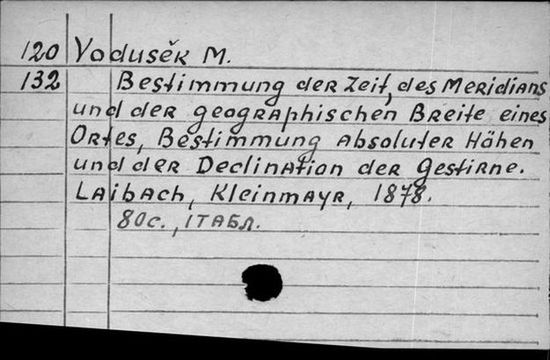 120 Vodusěk M.
132 Bestimmung der Zeit, des Meridians
und der geographischen Breite eines
Ortes, Bestimmung absoluter Höhen
und der Declination der Gestirne.
Laibach, Kleinmayr, 1878.
80с., 1табл.